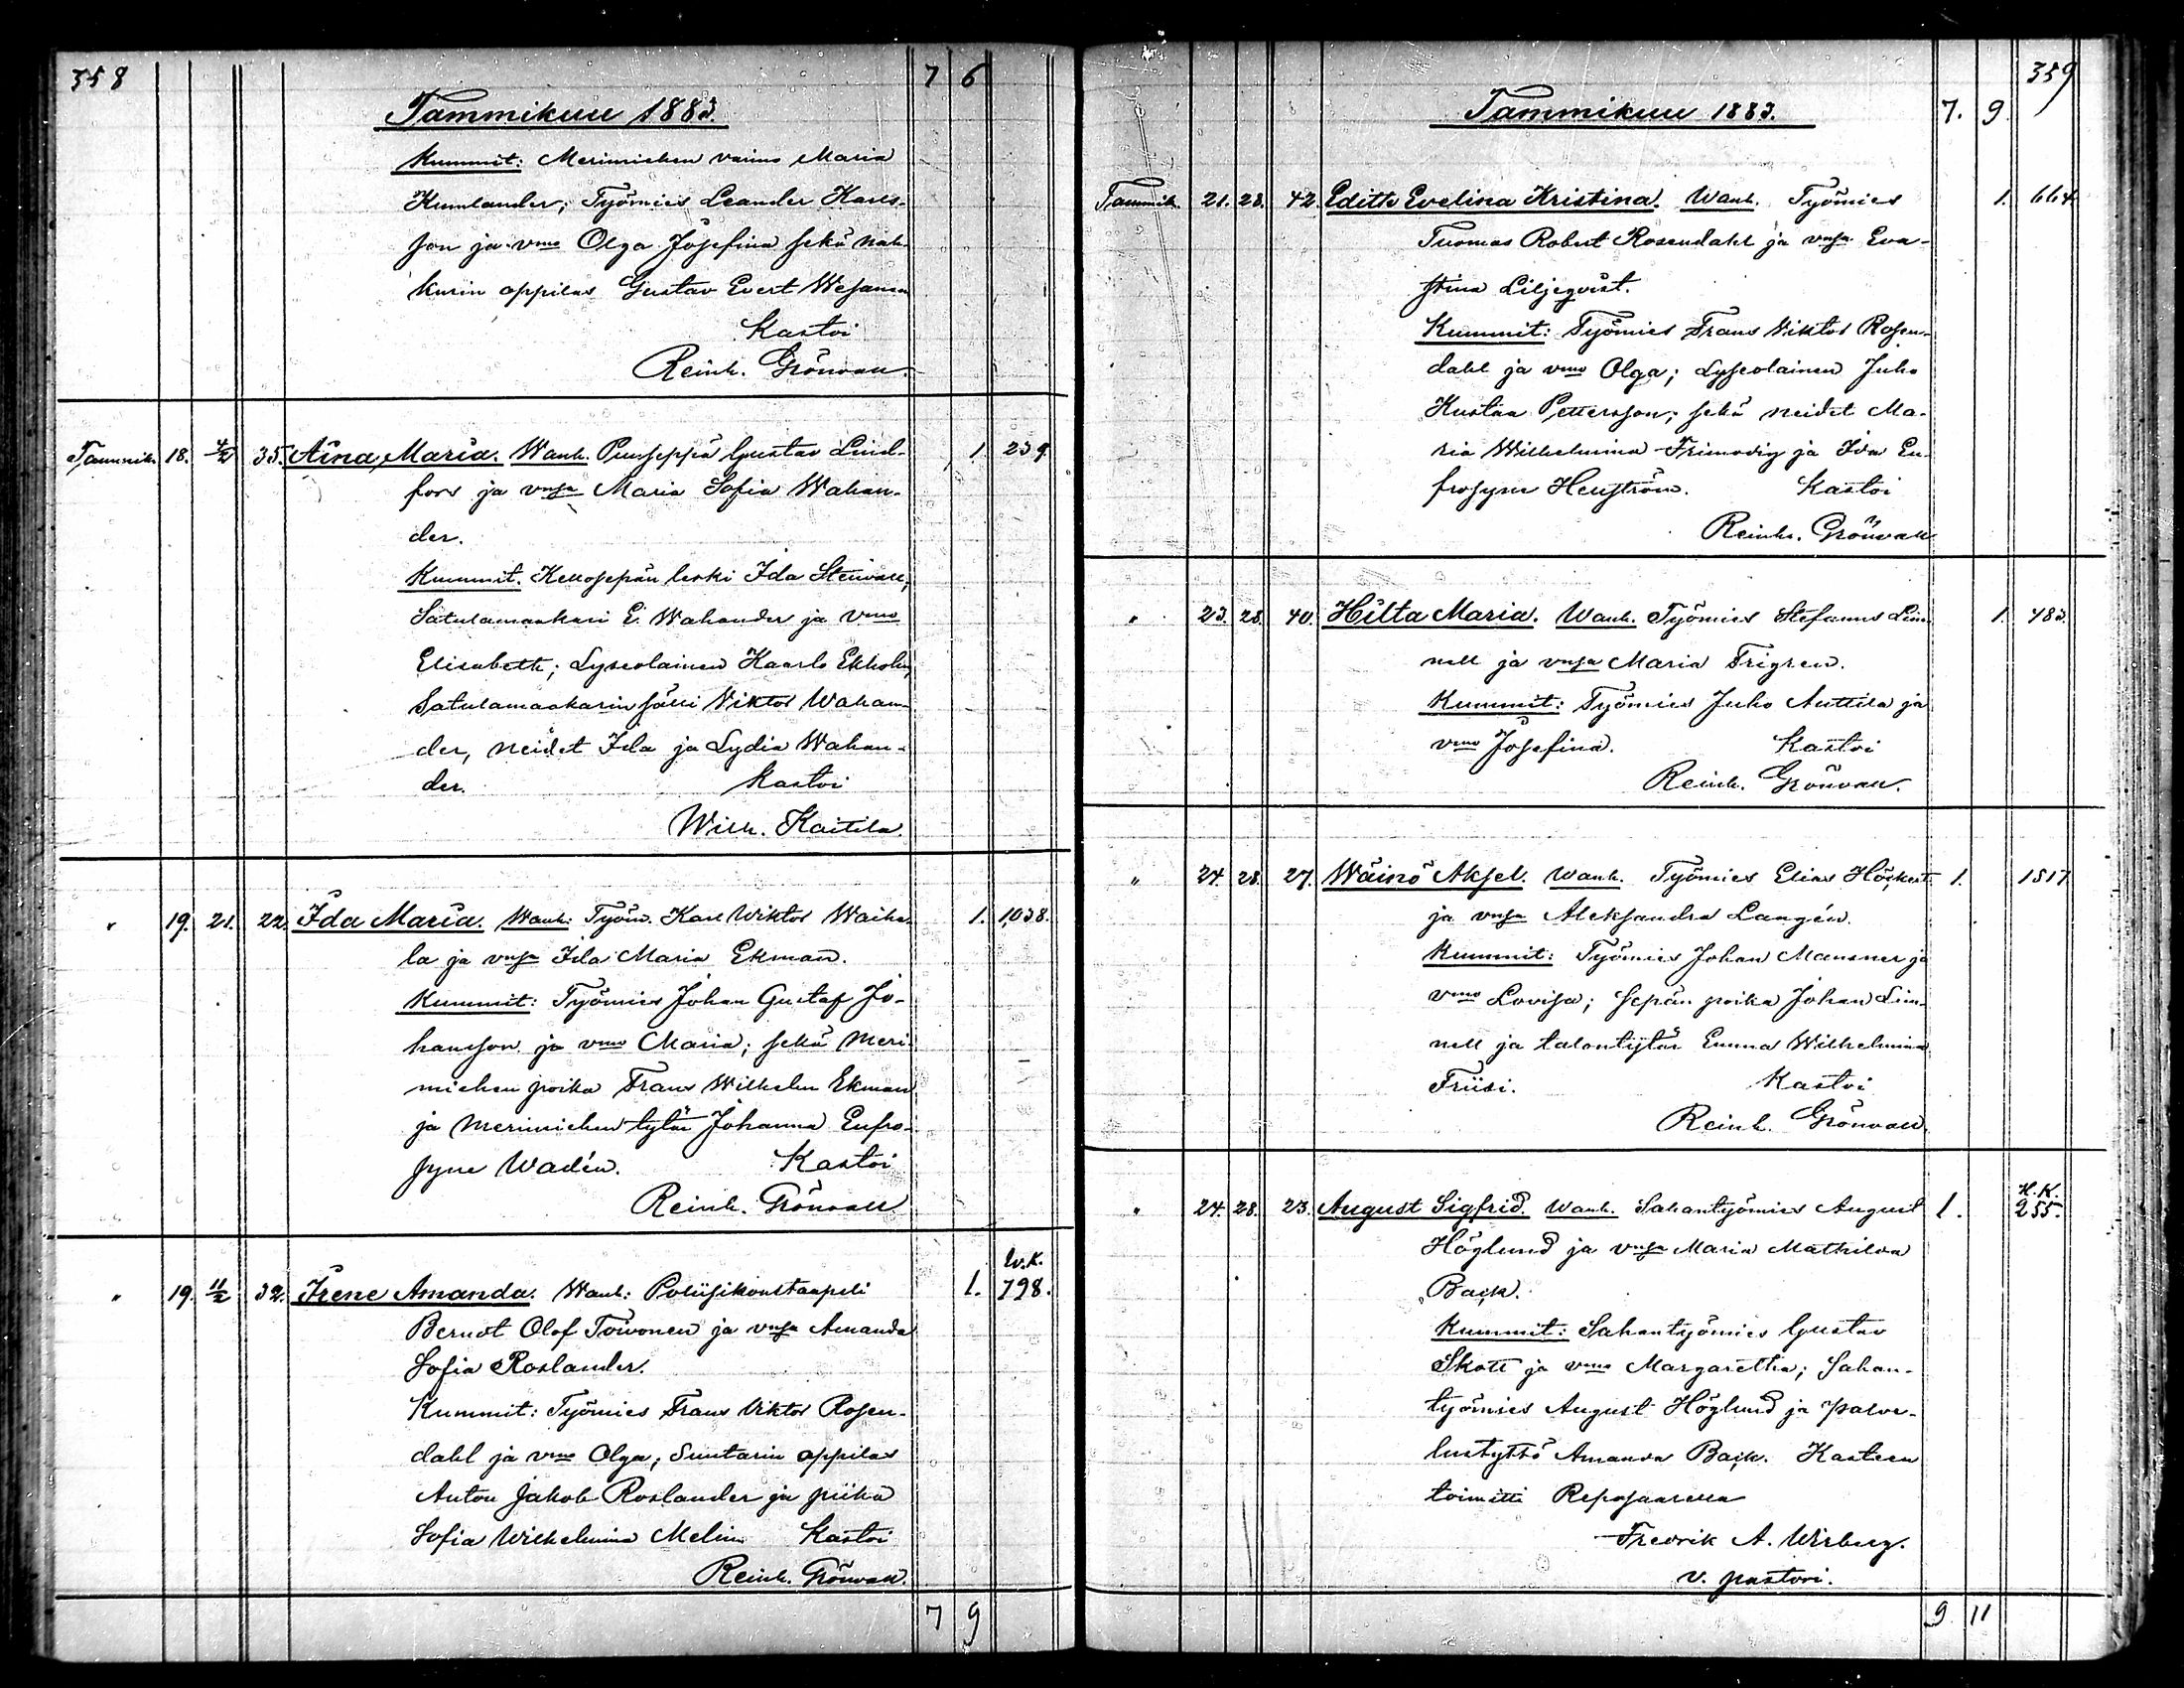 358 7 6
Tammikuu 1883.
Kummit: Merimiehen vaimo Maria
Kumlander; Työmies Leander Karls-
son ja vmo Olga Josefina sekä nah-
kurin oppilas Gustav Evert Wesanen
Kastoi
Reinh. Grönvall.
Tammik. 18. 4/2 35. Aina Maria. Wanh. Puuseppä Gustav Lind- 1. 239.
fors ja vnsa Maria Sofia Wahan-
der.
Kummit. Kellosepän leski Ida Stenvall;
Satulamaakari E. Wahander ja vmo
Elisabeth; Lyseolainen Kaarlo Ekholm,
Satulamaakarin sälli Viktor Wahan-
der, neidet Ida ja Lydia Wahan-
der. Kastoi
Wilh. Kaitila.
" 19. 21. 22. Ida Maria. Wanh: Työm. Karl Wiktor Waiha- 1. 1,038.
la ja vnsa Ida Maria Ekman.
Kummit: Työmies Johan Gustaf Jo-
hansson ja vmo Maria; sekä Meri-
miehen poika Frans Wilhelm Ekman
ja Merimiehen tytär Johanna Eufro-
syne Wadén. Kastoi
Reinh. Grönvall
" 19. 11/2 32. Irene Amanda. Wanh: Poliisikonstaapeli 1. W.K. 798.
Berndt Olof Toivonen ja vnsa Amanda
Sofia Roslander.
Kummit: Työmies Frans Viktor Rosen-
dahl ja vmo Olga; Suutarin oppilas
Anton Jakob Roslander ja piika
Sofia Wilhelmina Melin Kastoi
Reinh. Grönvall.
7 9
359
Tammikuu 1883. 7. 9.
Tammik. 21. 28. 42. Edith Evelina Kristina. Wanh. Työmies 1. 664.
Tuomas Robert Rosendahl ja vnsa Eva-
stina Liljeqvist.
Kummit: Työmies Frans Viktor Rosen-
dahl ja vmo Olga; Lyseolainen Juho
Kustaa Pettersson; sekä neidet Ma-
ria Wilhelmina Frimodig ja Ida Eu-
frosyne Hellström. Kastoi
Reinh. Grönvall
" 23. 28. 40. Hilta Maria. Wanh. Työmies Stefanus Lin- 1. 483.
nell ja vnsa Maria Frigren.
Kummit: Työmies Juho Anttila ja
vmo Josefina. Kastoi
Reinh. Grönvall.
" 24. 28. 27. Wäinö Aksel. Wanh. Työmies Elias Höckert 1. 1517
ja vnsa Aleksandra Langén.
Kummit: Työmies Johan Mansner ja
vmo Lovisa; Sepän poika Johan Lin-
nell ja talontytär Emma Wilhelmina
Friisi. Kastoi
Reinh. Grönvall.
" 24. 28. 23. August Sigfrid. Wanh. Sahantyömies August 1. H.K. 255.
Höglund ja vnsa Maria Mathilda
Back.
Kummit: Sahantyömies Gustav
Skott ja vmo Margaretha; Sahan-
työmies August Höglund ja palve-
lustyttö Amanda Back. Kasteen
toimitti Reposaarella
Fredrik A. Wirberg.
v. pastori.
9 11